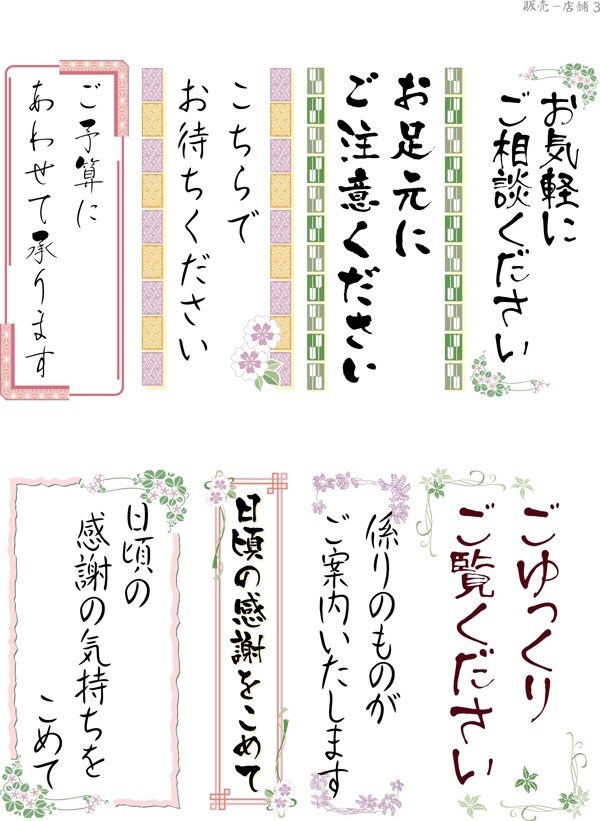 販売－店舗３
お気軽に
ご相談ください
お足元に
ご注意ください
こちらで
お待ちください
ご予算に
あわせて承ります
ごゆっくり
ご覧ください
係りのものが
ご案内いたします
日頃の感謝をこめて
日頃の
感謝の気持ちを
こめて